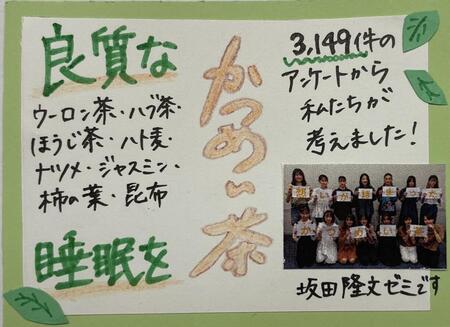 良質な
ウーロン茶・ハブ茶・
ほうじ茶・ハト麦・
ナツメ・ジャスミン・
柿の葉・昆布
睡眠を
かつめい茶
3,149件の
アンケートから
私たちが
考えました!
坂田隆文ゼミです